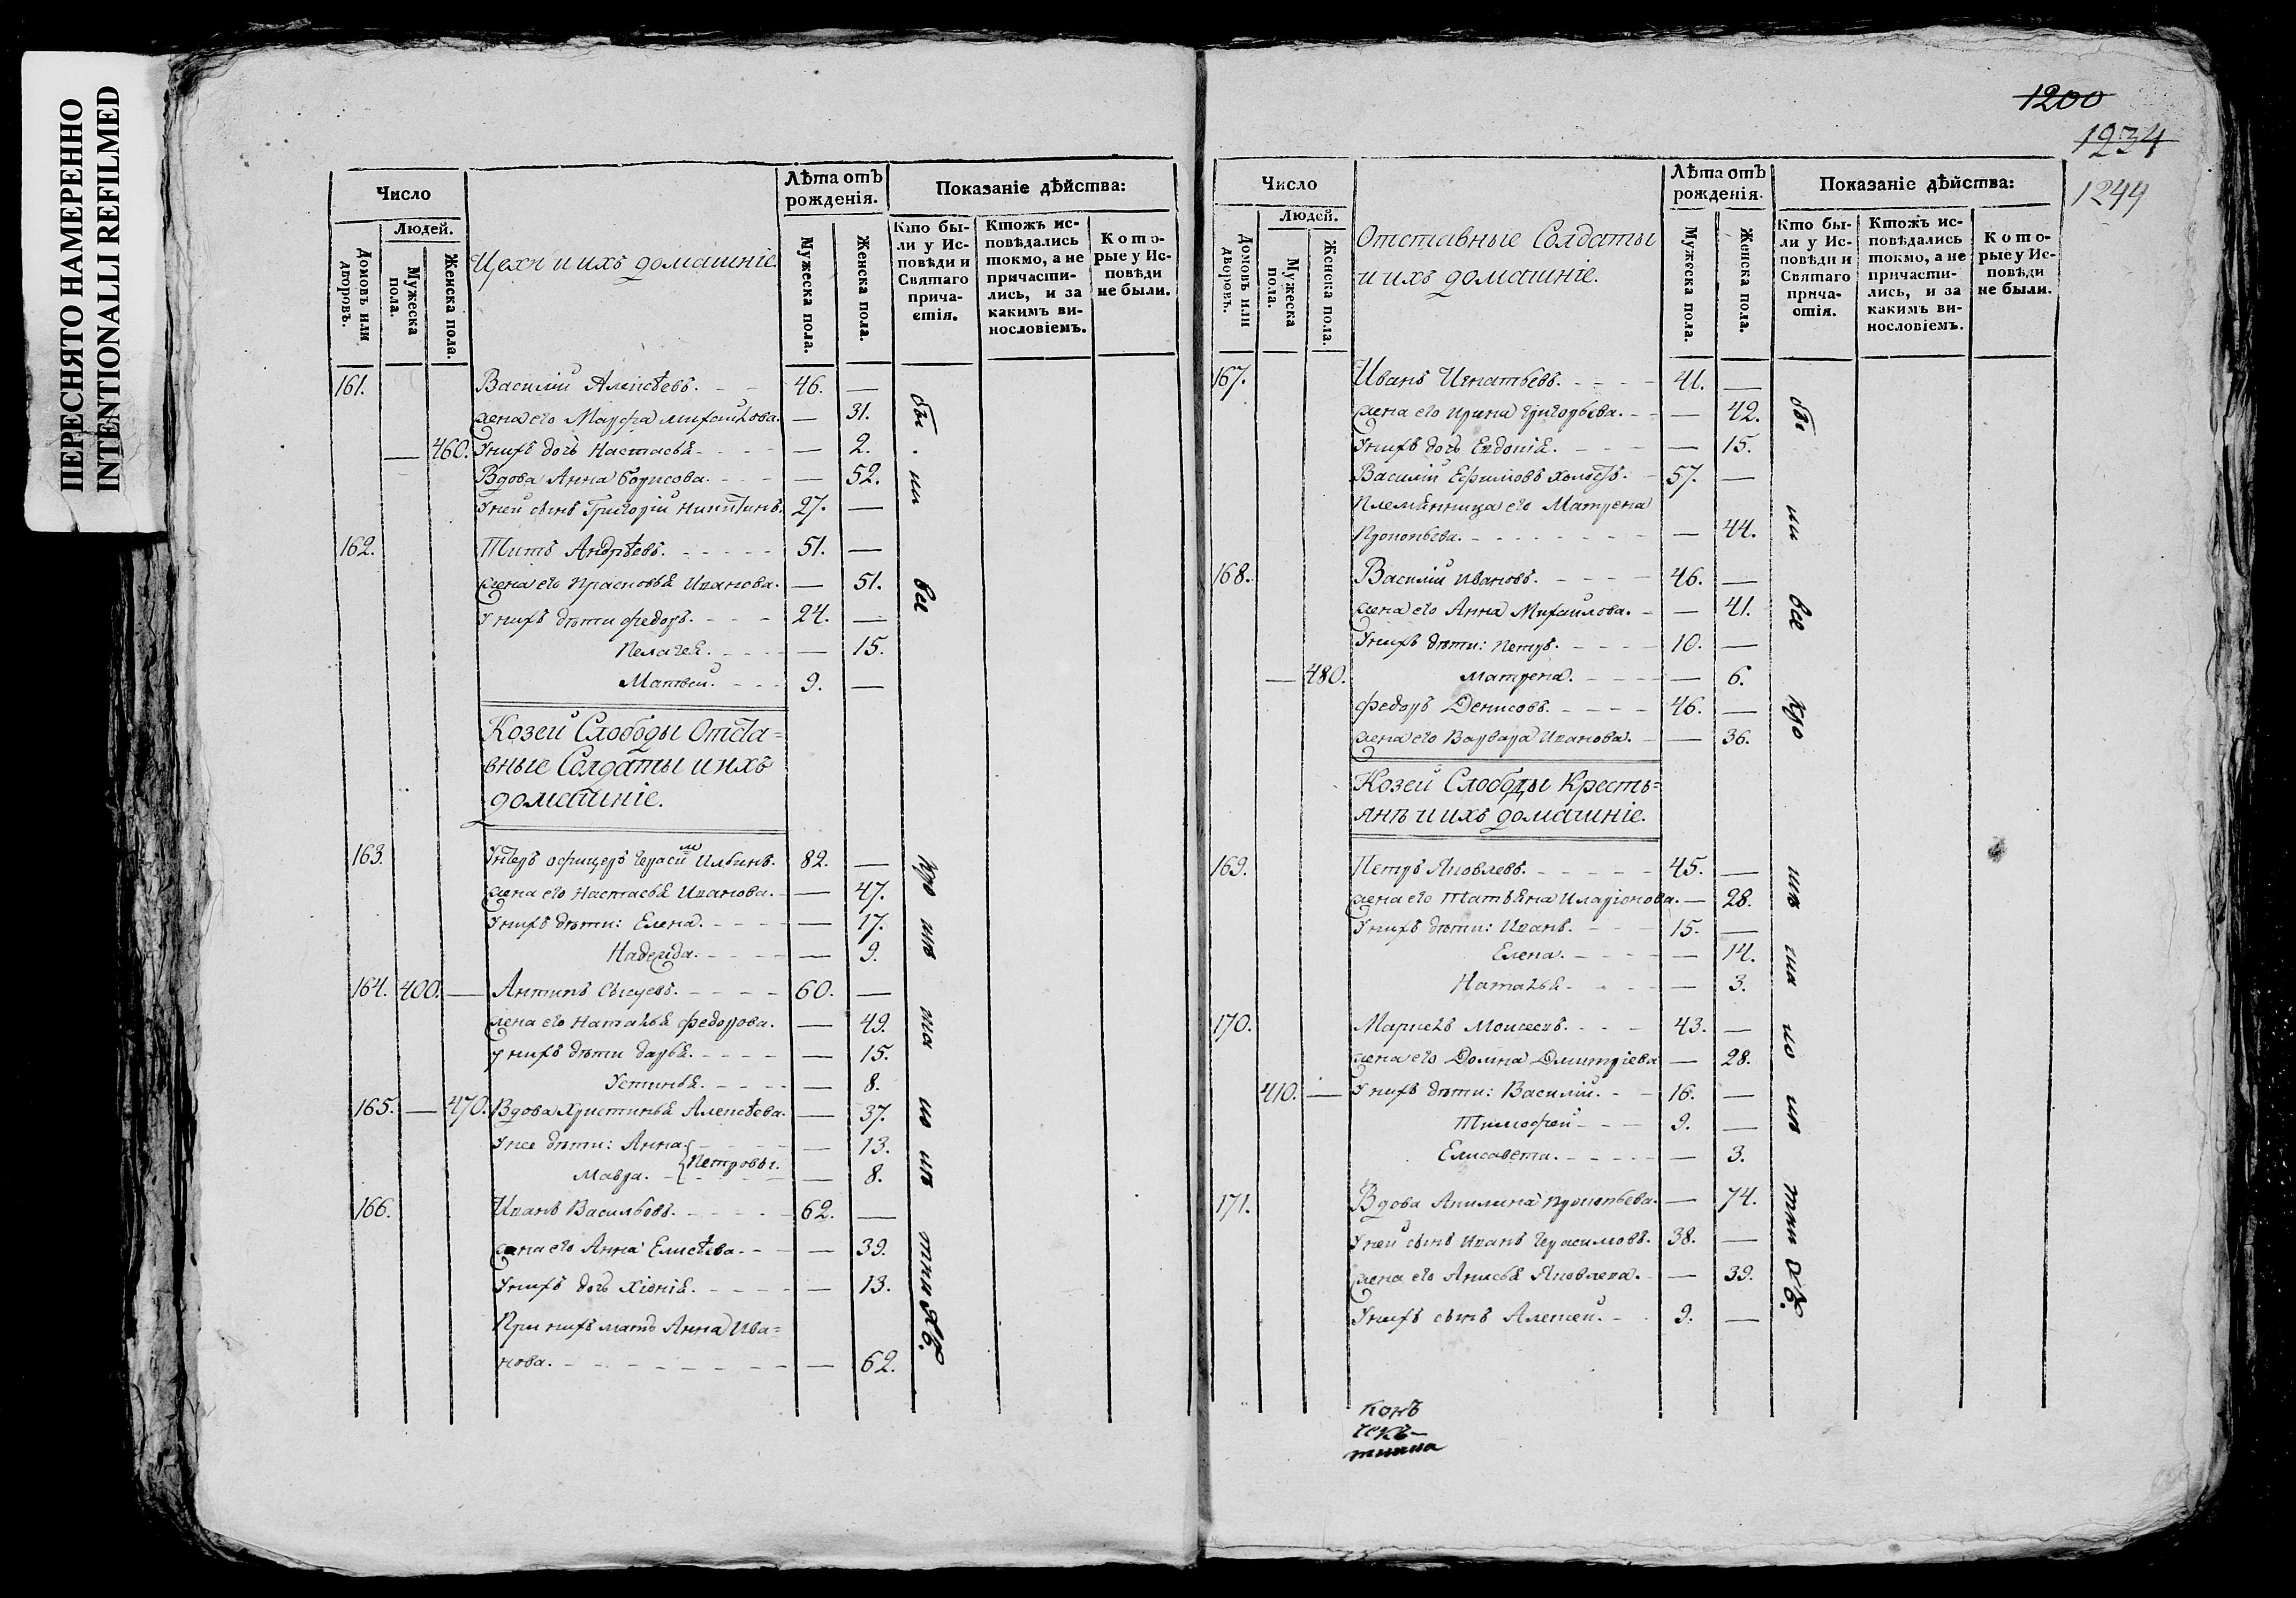 ПЕРЕСНЯТО НАМЕРЕННО
INTENTIONALLI REFILMED
Число
Людей.
Домовъ или дворовъ.
Мужеска пола.
Женска пола.
Цехи и ихъ домашніе
Лѣта отъ рожденія.
Мужеска пола.
Женска пола.
Показаніе дѣйства:
Кто бы-
ли у Ис-
повѣди и
Святаго
прича-
стія.
Ктожъ ис-
повѣдались
токмо, а не
причасти-
лись, и за
какимъ ви-
нословіемъ.
Кото-
рые у Ис-
повѣди
не были.
161. Василій Алексѣевъ. 46. —
жена его Марфа михайлова. — 31.
— 460. У нихъ дочь Настасья — 2.
Вдова Анна борисова. — 52.
У ней сынъ Григорій Никитинъ. 27. —
162. Титъ Андрѣевъ. 51. —
жена его Прасковья Иванова. — 51.
У нихъ дѣти федоръ. 24. —
Пелагея. — 15.
Матвей. 9. —
Козей Слободы Отста=
вные Солдаты и ихъ
домашніе.
163. Унтеръ офицеръ Герасимъ Ильинъ. 82. —
жена его Настасья Иванова. — 47.
У нихъ дѣти: Елена. — 17.
Надежда. — 9.
164. 400. — Антипъ Сысуевъ. 60. —
жена его Наталья федорова. — 49.
у нихъ дѣти дарья. — 15.
Устинья. — 8.
165. — 470. Вдова Христинья Алексѣева. — 37.
У нее дѣти: Анна — 13.
Петровы.
Мавра. — 8.
166. Иванъ Васильевъ. 62. —
жена его Анна Елисѣева. — 39.
У нихъ дочь Хіонія. — 13.
При нихъ мать Анна Ива=
нова. — 62.
бы ли все
1200
1234
1244
Число
Людей.
Домовъ или дворовъ.
Мужеска пола.
Женска пола.
Отставные Солдаты
и ихъ домашніе.
Лѣта отъ рожденія.
Мужеска пола.
Женска пола.
Показаніе дѣйства:
Кто бы-
ли у Ис-
повѣди и
Святаго
прича-
стія.
Ктожъ ис-
повѣдались
токмо, а не
причасти-
лись, и за
какимъ ви-
нословіемъ.
Кото-
рые у Ис-
повѣди
не были.
167. Иванъ Игнатьевъ. 41. —
жена его Ирина Григорьева. — 42.
У нихъ дочь Евдокія. — 15.
Василій Ефимовъ 57. —
Племянница его Матрена
Прокопьева. — 44.
168. Василій Ивановъ. 46. —
жена его Анна Михайлова. — 41.
У нихъ дѣти: Петръ. 10. —
— 480. Матрена. — 6.
федоръ Денисовъ. 46. —
жена его Варвара Иванова. — 36.
Козей Слободы Кресть=
янъ и ихъ домашніе.
169. Петръ Яковлевъ. 45. —
жена его Татьяна Иларіонова. — 28.
У нихъ дѣти: Иванъ. 15. —
Елена. — 14.
Наталья — 3.
170. Маркелъ Моисеевъ. 43. —
жена его Домна Дмитріева — 28.
410. — У нихъ дѣти: Василій. 16. —
Тимофей 9. —
Елисавета. — 3.
171. Вдова Акилина Прокопьева. — 74.
У ней сынъ Иванъ Герасимовъ. 38. —
жена его Анисья Яковлева. — 39.
У нихъ сынъ Алексей. 9. —
бы ли все